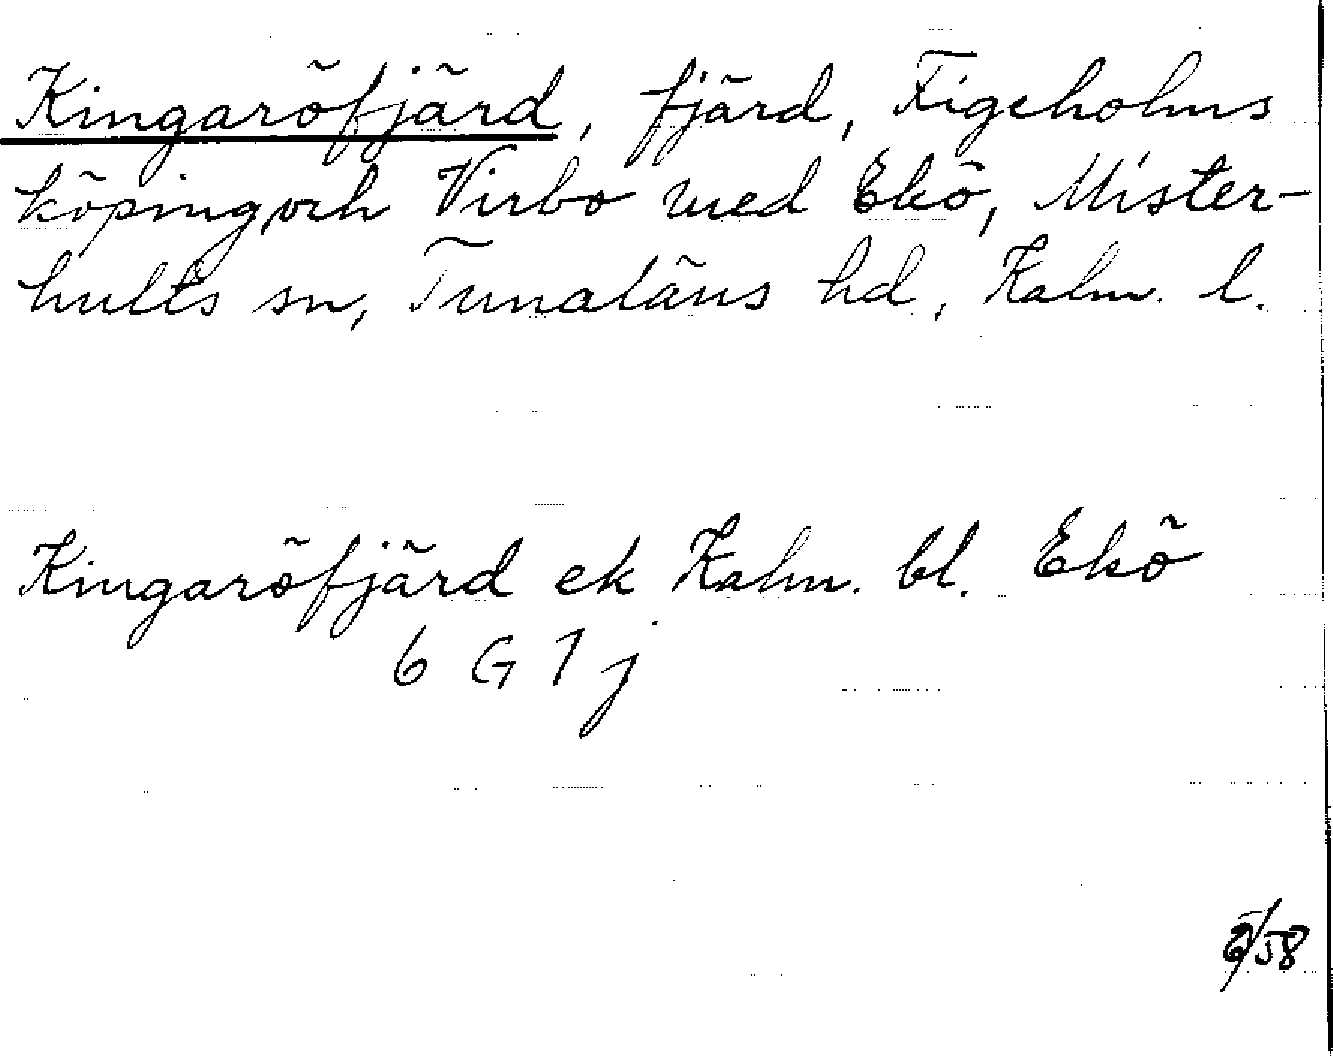 Kingaröfjärd, fjärd, Figeholms
köping och Virbo med Ekö, Mister-
hults sn, Tunaläns hd, Kalm. l.
Kingaröfjärd ek Kalm. bl. Ekö
6 G 1 j